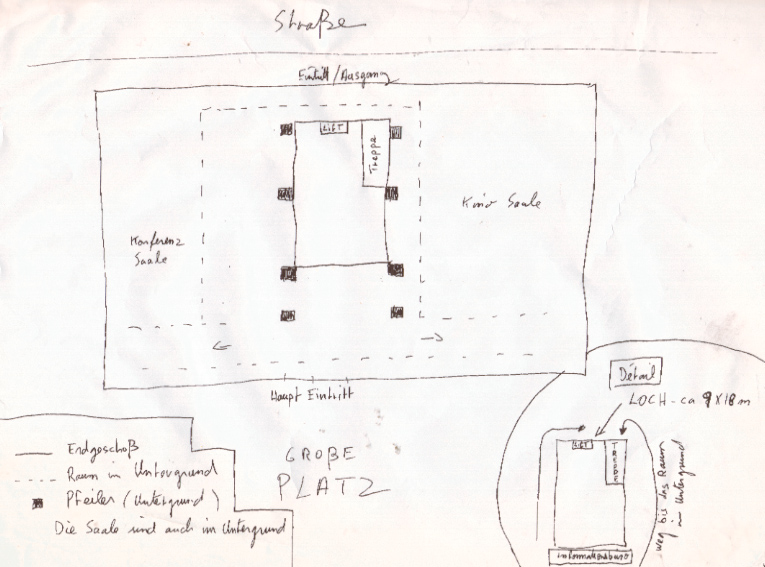 Straße
Eintritt/Ausgang
LIFT
Treppe
Konferenz
Saale
Kino Saale
Haupt Eintritt
GROßE
PLATZ
Erdgeschoß
Raum im Untergrund
Pfeiler (Untergrund)
Die Saale sind auch im Untergrund
Détail
LOCH - ca 9 X 18 m
LIFT
Weg bis das Raum
im Untergrund
Informationsbüro